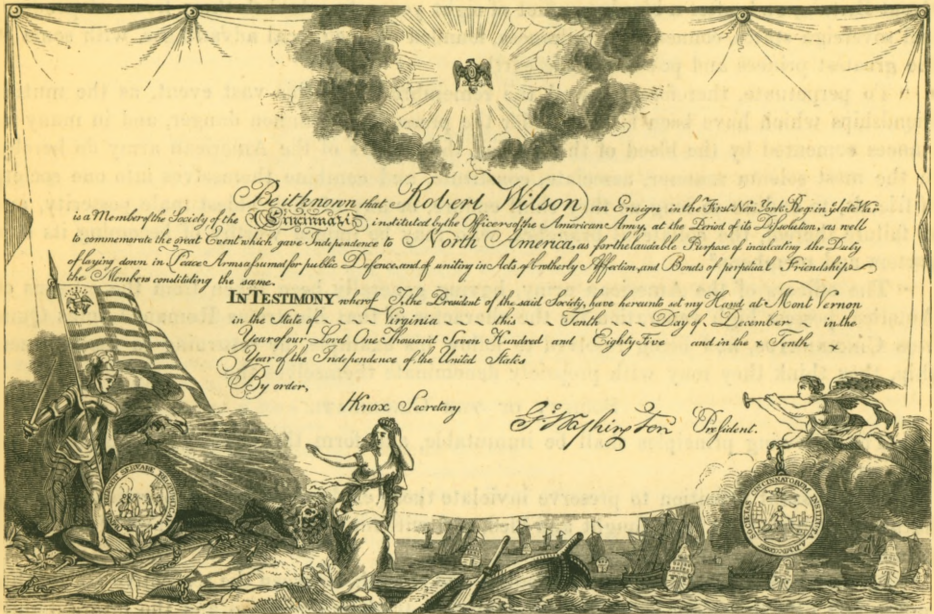 Be it known that Robert Wilson an Ensign in the First New York Reg.in y late War
is a Member of the Society of the Cincinnati, instituted by the Officers of the American Army, at the Period of its Dissolution, as well
to commemorate the great Event which gave Independence to North America, as for the laudable Purpose of inculcating the Duty
of laying down in Peace Arms assumed for public Defence, and of uniting in Acts of brotherly Affection, and Bonds of perpetual Friendship
the Members constituting the same.
IN TESTIMONY whereof I, the President of the said Society, have hereunto set my Hand at Mont Vernon
in the State of Virginia this Tenth Day of December in the
Year of our Lord One Thousand Seven Hundred and Eighty Five and in the Tenth
Year of the Independence of the United States
By order,
HKnox Secretary
Go Washington President.